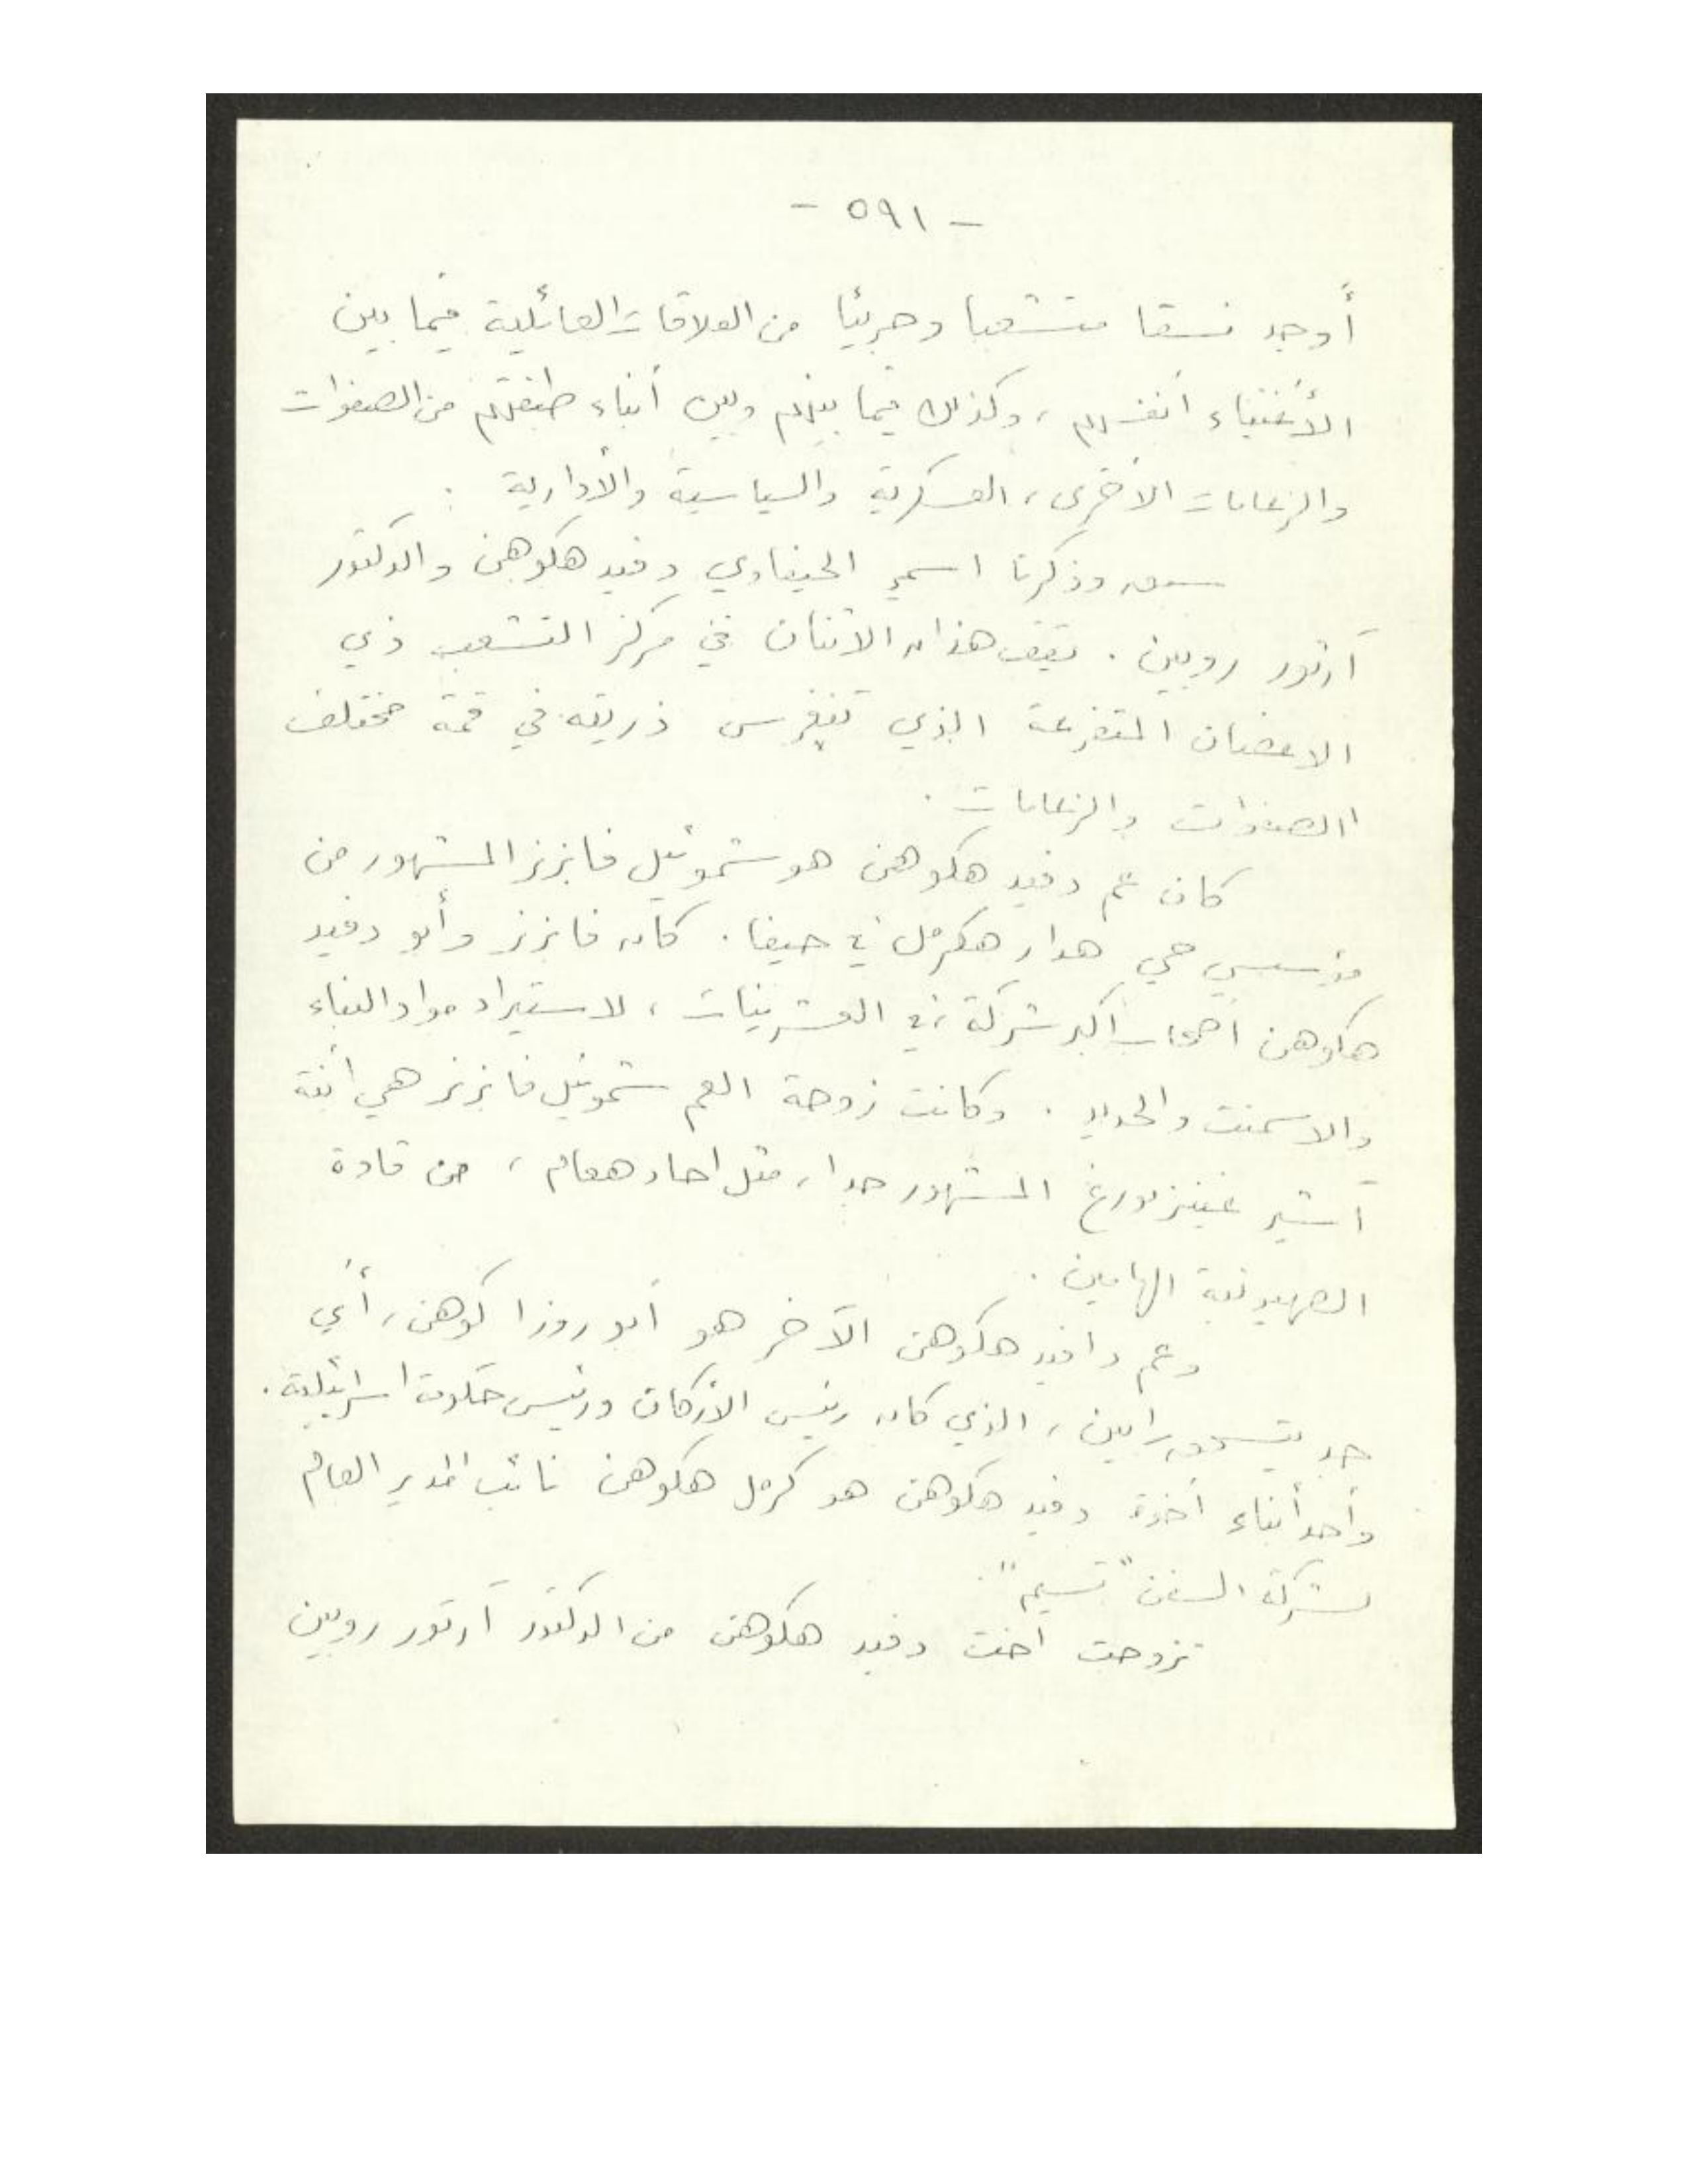 - ٥٩١ -
أوجد نسقا متشعبا وجريئا من العلاقات العائلية فيما بين
الأغنياء أنفسهم ، وكذلك فيما بينهم وبين أبناء طبقتهم من الصفوات
والزعامات الأخرى ، العسكرية والسياسية والادارية .
سبق وذكرنا اسمي الحيفاوي دفيد هكوهن والدكتور
آرتور روبين . يقف هذان الاثنان في مركز التشعب ذي
الاغصان المتفرعة الذي تنغرس ذريته في قمة مختلف
الصفوات والزعامات .
كان عم دفيد هكوهن هو شموئيل فابزنر المشهور من
مؤسسي حي هدار هكرمل في حيفا . كان فابزنر وأبو دفيد
هكوهن أصحاب أكبر شركة في العشرينات ، لاستيراد مواد البناء
والاسمنت والحديد . وكانت زوجة العم شموئيل فابزنر هي ابنة
آشير غينزبورغ المشهور جدا ، مثل احاد هعام ، من قادة
الصهيونية الهامين .
وعم دافيد هكوهن الآخر هو أبو روزا كوهن ، أي
جد يتسحق رابين ، الذي كان رئيس الأركان ورئيس حكومة اسرائيلية .
وأحد أبناء أخوة دفيد هكوهن هو كرمل هكوهن نائب المدير العام
لشركة السفن "تسيم" .
تزوجت أخت دفيد هكوهن من الدكتور آرتور روبين